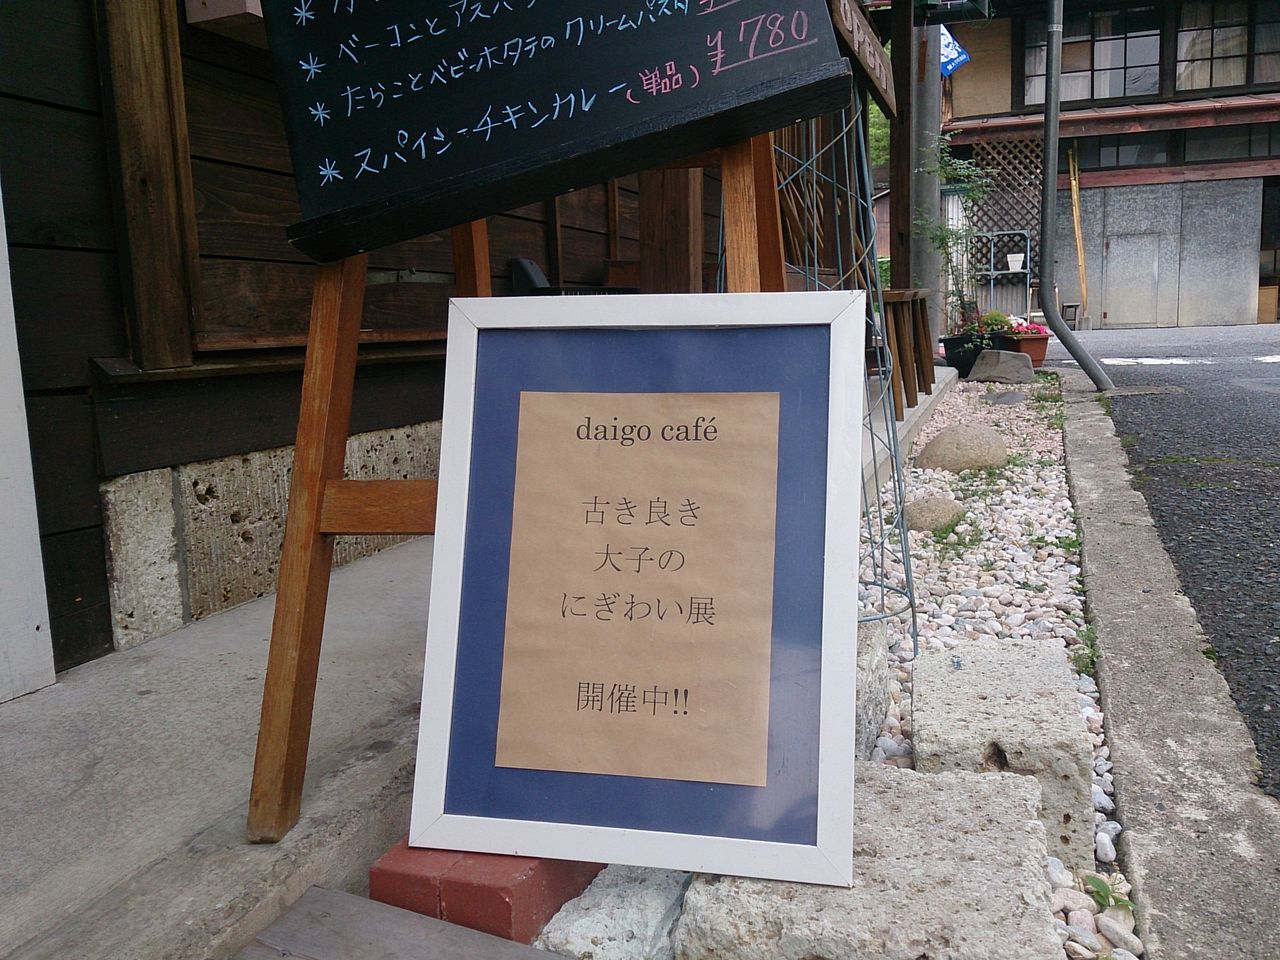 * ベーコンとアスパラ
* たらことベビーホタテのクリームパスタ
* スパイシーチキンカレー(単品) ¥780
daigo café
古き良き
大子の
にぎわい展
開催中!!